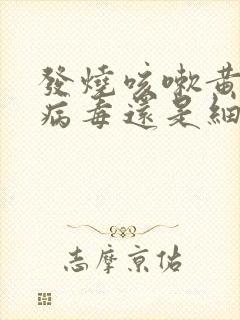 發燒咳嗽黃
病毒還是細
志摩京佑